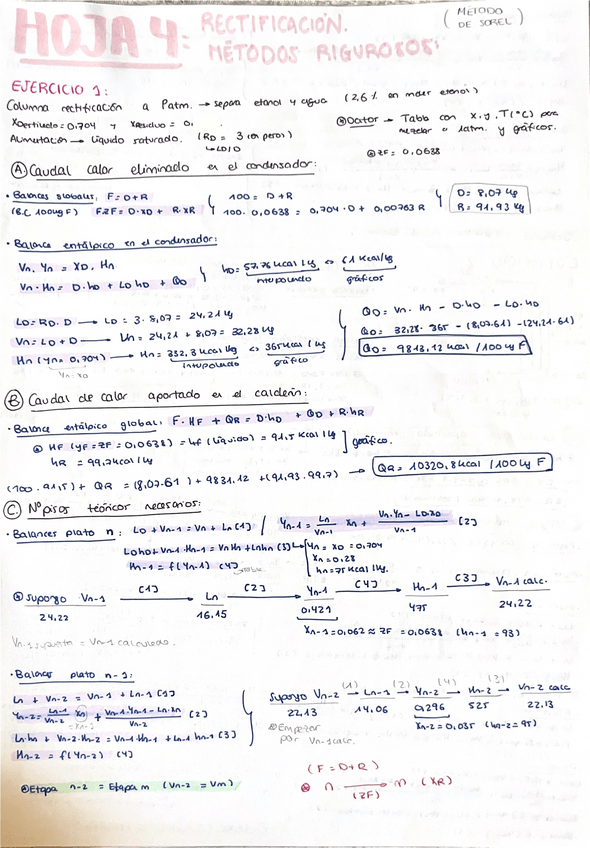 HOJA 4: RECTIFICACIÓN. MÉTODOS RIGUROSOS: (MÉTODO DE SOREL)
EJERCICIO 1:
Columna rectificación a Patm. → separa etanol y agua (2,6% en moler etanol)
XDestilado = 0,704 y XResiduo = 0,
Alimentación → Líquido saturado. (RD = 3 (en peso)
↳ L0/D
Dator → Tabla con x, y, T(°C) para mezclar a 1atm. y gráficos.
ZF = 0,0638
A) Caudal calor eliminado en el condensador:
• Balances globales, F = D + R
(B.C. 100 kg F) F·ZF = D·XD + R·XR
100 = D + R
100 · 0,0638 = 0,704 · D + 0,00763 R
D = 8,07 kg
R = 91,93 kg
• Balance entálpico en el condensador:
Vn · Yn = XD, Hn
Vn · Hn = D·hD + L0 hD + QD
hD = 57,76 kcal/kg ↔ 61 kcal/kg
interpolando gráficos
L0 = RD · D → L0 = 3 · 8,07 = 24,21 kg
Vn = L0 + D → Vn = 24,21 + 8,07 = 32,28 kg
Hn (Yn = 0,704) → Hn = 352,8 kcal/kg ↔ 365 kcal/kg
Yn = XD interpolando gráfico
QD = Vn · Hn - D·hD - L0·hD
QD = 32,28 · 365 - (8,07·61) - (24,21·61)
QD = 9813,12 kcal/100 kg F
B) Caudal de calor aportado en el calderín:
• Balance entálpico global: F·HF + QR = D·hD + QD + R·hR
HF (yF = ZF = 0,0638) = hf (líquido) = 91,5 kcal/kg
hR = 99,7 kcal/kg
gráfico.
(100 · 91,5) + QR = (8,07·61) + 9831,12 + (91,93·99,7) → QR = 10320,8 kcal/100 kg F
C) Nº pisos teóricos necesarios:
• Balances plato n: L0 + Vn-1 = Vn + Ln [1] / Yn-1 = Ln/Vn-1 Xn + Vn·Yn - L0·XD/Vn-1 [2]
L0h0 + Vn-1·Hn-1 = Vn Hn + Ln hn [3]
Hn-1 = f(Yn-1) [4]
Yn = XD = 0,704
Xn = 0,28
hn = 75 kcal/kg.
Supongo Vn-1 [1]→ Ln [2]→ Yn-1 [4]→ Hn-1 [3]→ Vn-1 calc.
24,22 16,15 0,421 475 24,22
Vn-1 supuesto = Vn-1 calculado.
Xn-1 = 0,062 ≈ ZF = 0,0638 (hn-1 = 93)
• Balances plato n-1:
Ln + Vn-2 = Vn-1 + Ln-1 [1]
Yn-2 = Ln-1/Vn-2 Xn-1 + Vn-1·Yn-1 - Ln·Xn/Vn-2 [2]
Ln·hn + Vn-2·Hn-2 = Vn-1·Hn-1 + Ln-1 hn-1 [3]
Hn-2 = f(Yn-2) [4]
Supongo Vn-2 (1)→ Ln-1 (2)→ Yn-2 (4)→ Hn-2 (3)→ Vn-2 calc
22,13 14,06 0,296 525 22,13
Empezar por Vn-1 calc.
Xn-2 = 0,035 (hn-2 = 95)
Etapa n-2 = Etapa m (Vn-2 = Vm)
(F = D + R)
n → m (XR)
(ZF)